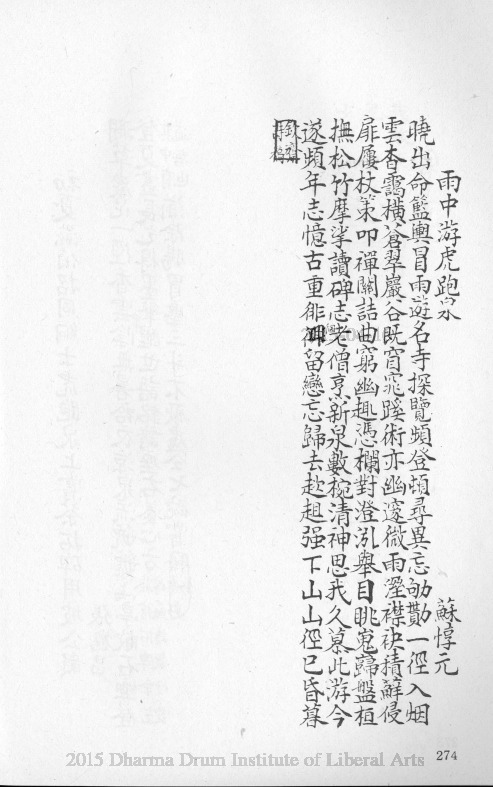 雨中游虎跑泉
蘇惇元
曉出命籃輿冒雨遊名寺探覽頻登頓尋異忘劬勩一徑入烟
雲杳靄橫蒼翠巖谷既窅窕蹊術亦幽邃微雨溼襟袂積蘚侵
扉屨杖策叩禪關詰曲窮幽趣憑欄對澄泓舉目眺嵬巋盤桓
撫松竹摩挲讀碑志老僧烹新泉數椀清神思我久慕此游今
遂頻年志憶古重徘留戀忘歸去趑趄强下山山徑已昏暮
2015 Dharma Drum Institute of Liberal Arts
274